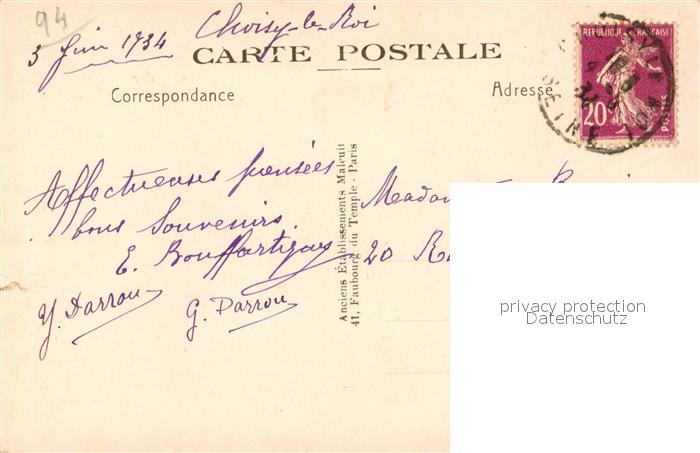 94
3 Juin 1934 Choisy-le-Roi
CARTE POSTALE
Correspondance
Adresse
REPUBLIQUE FRANÇAISE
20c
POSTES
SEINE
Affectueuses pensées
bons Souvenirs.
E. Bouffartigue
Y. Darrou
G. Darrou
Anciens Établissements Malcuit
41, Faubourg du Temple - Paris
Madame
20 R
privacy protection
Datenschutz